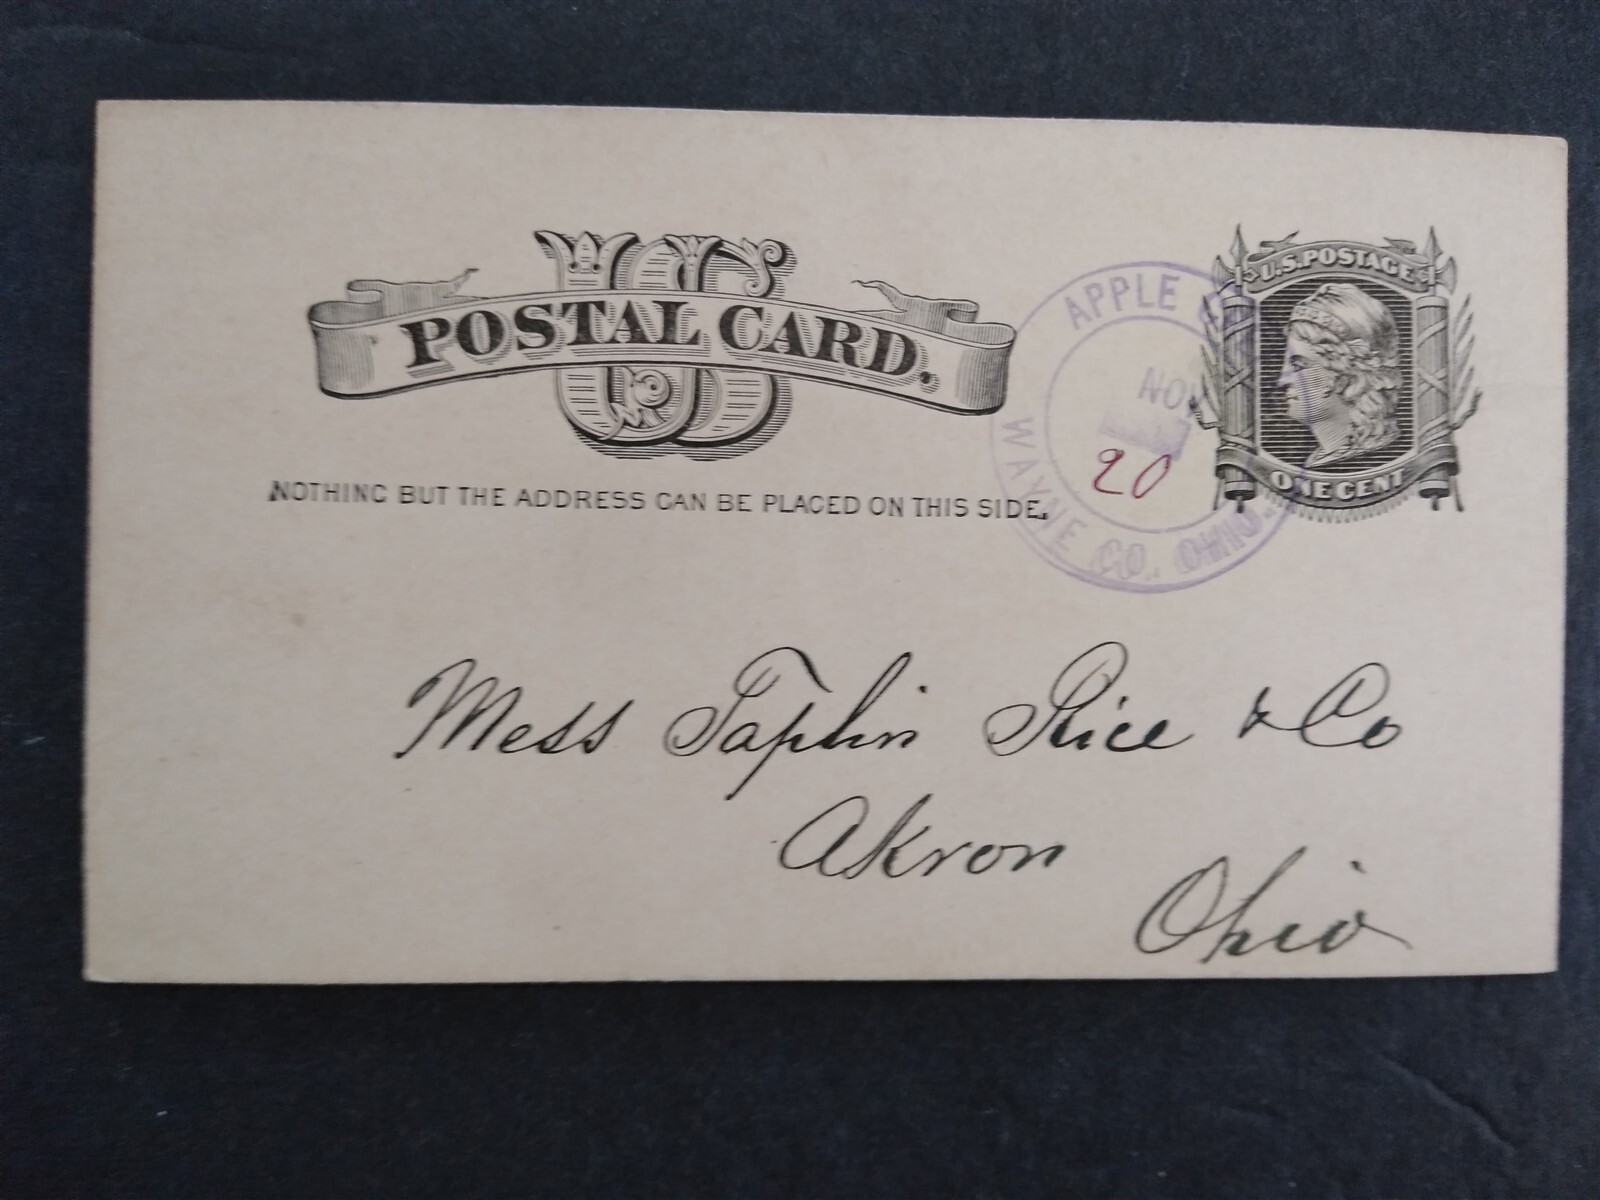 US
POSTAL CARD.
NOTHING BUT THE ADDRESS CAN BE PLACED ON THIS SIDE.
U.S. POSTAGE
ONE CENT
APPLE
NOV
20
WAYNE CO. OHIO.
Mess Taplin Rice & Co
Akron
Ohio